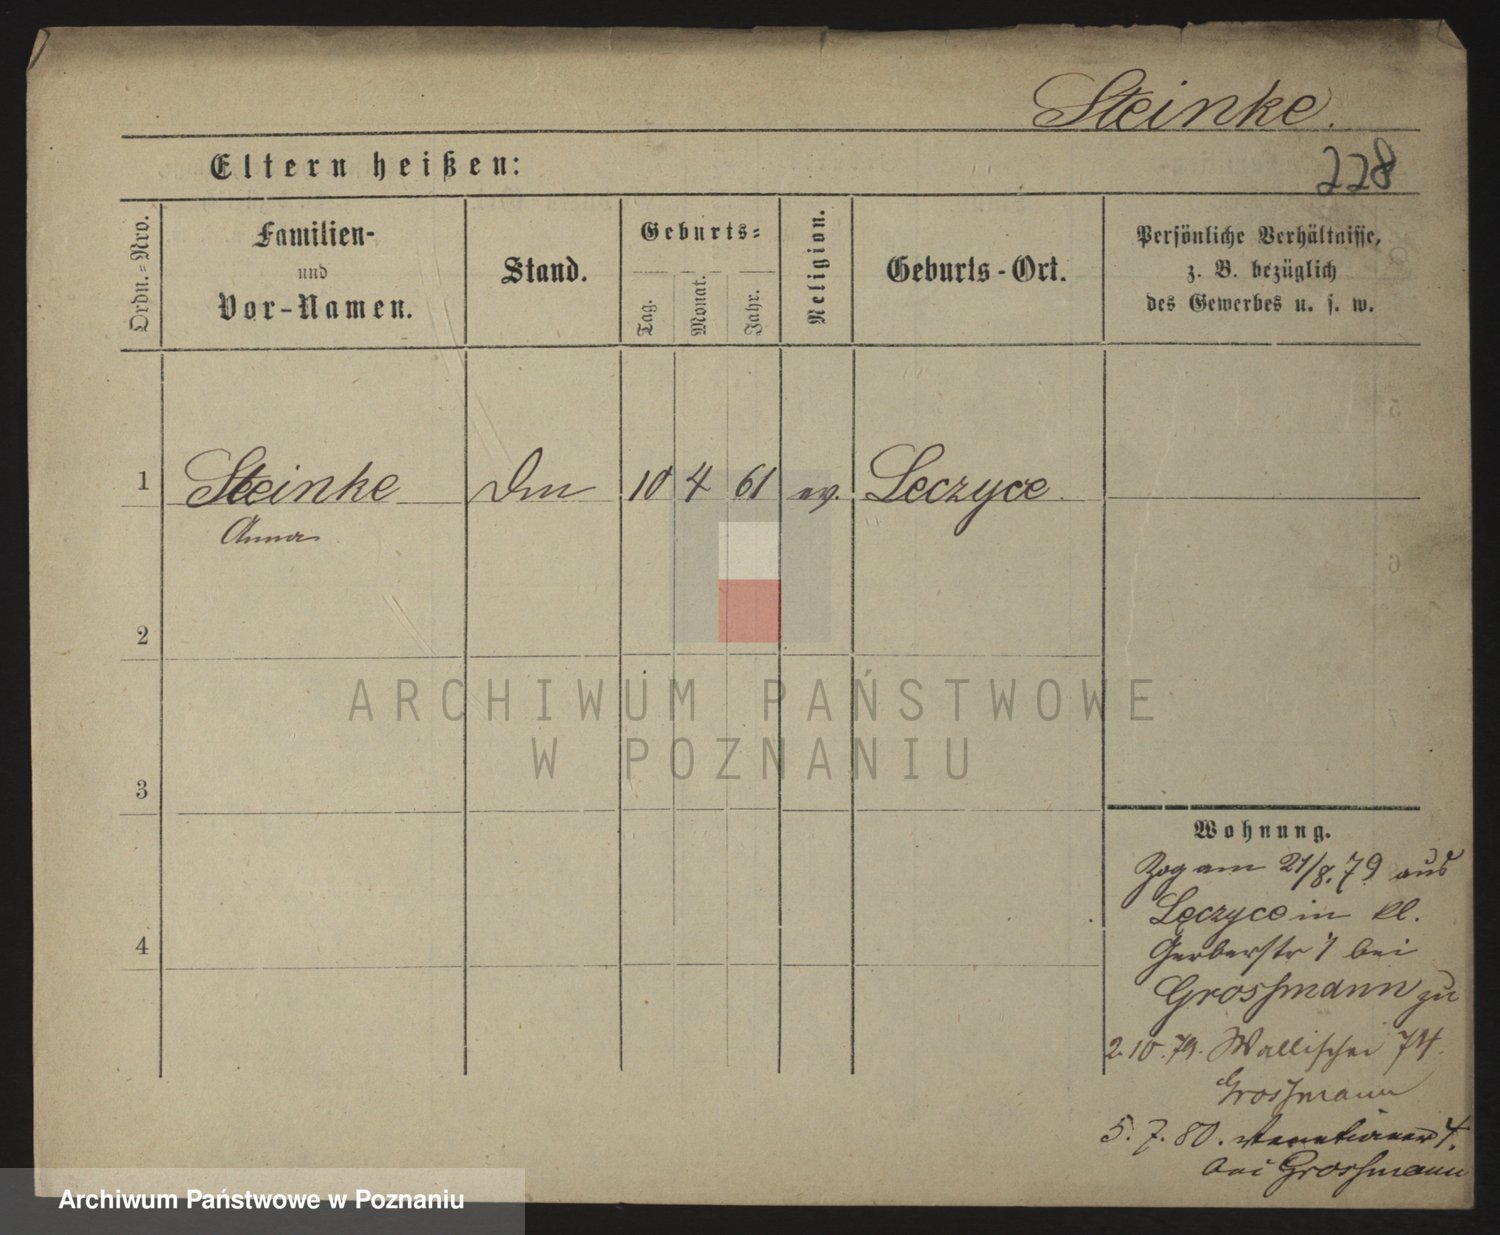 Steinke.
Eltern heißen:
228
Ordn.=Nro.
Familien-
und
Vor-Namen.
Stand.
Geburts=
Tag.
Monat.
Jahr.
Religion.
Geburts-Ort.
Persönliche Verhältnisse,
z. B. bezüglich
des Gewerbes u. s. w.
1 Steinke 10 4 61 ev. Leczyce
Anna
2
3
4
ARCHIWUM PAŃSTWOWE
W POZNANIU
Wohnung.
Zog am 21/8.79 aus
Lęczyce in kl.
Gerberstr 7 bei
Grossmann zu
2.10.79. Wallischei 74.
Grossmann
5.7.80. Venetianer 4.
bei Grossmann
Archiwum Państwowe w Poznaniu